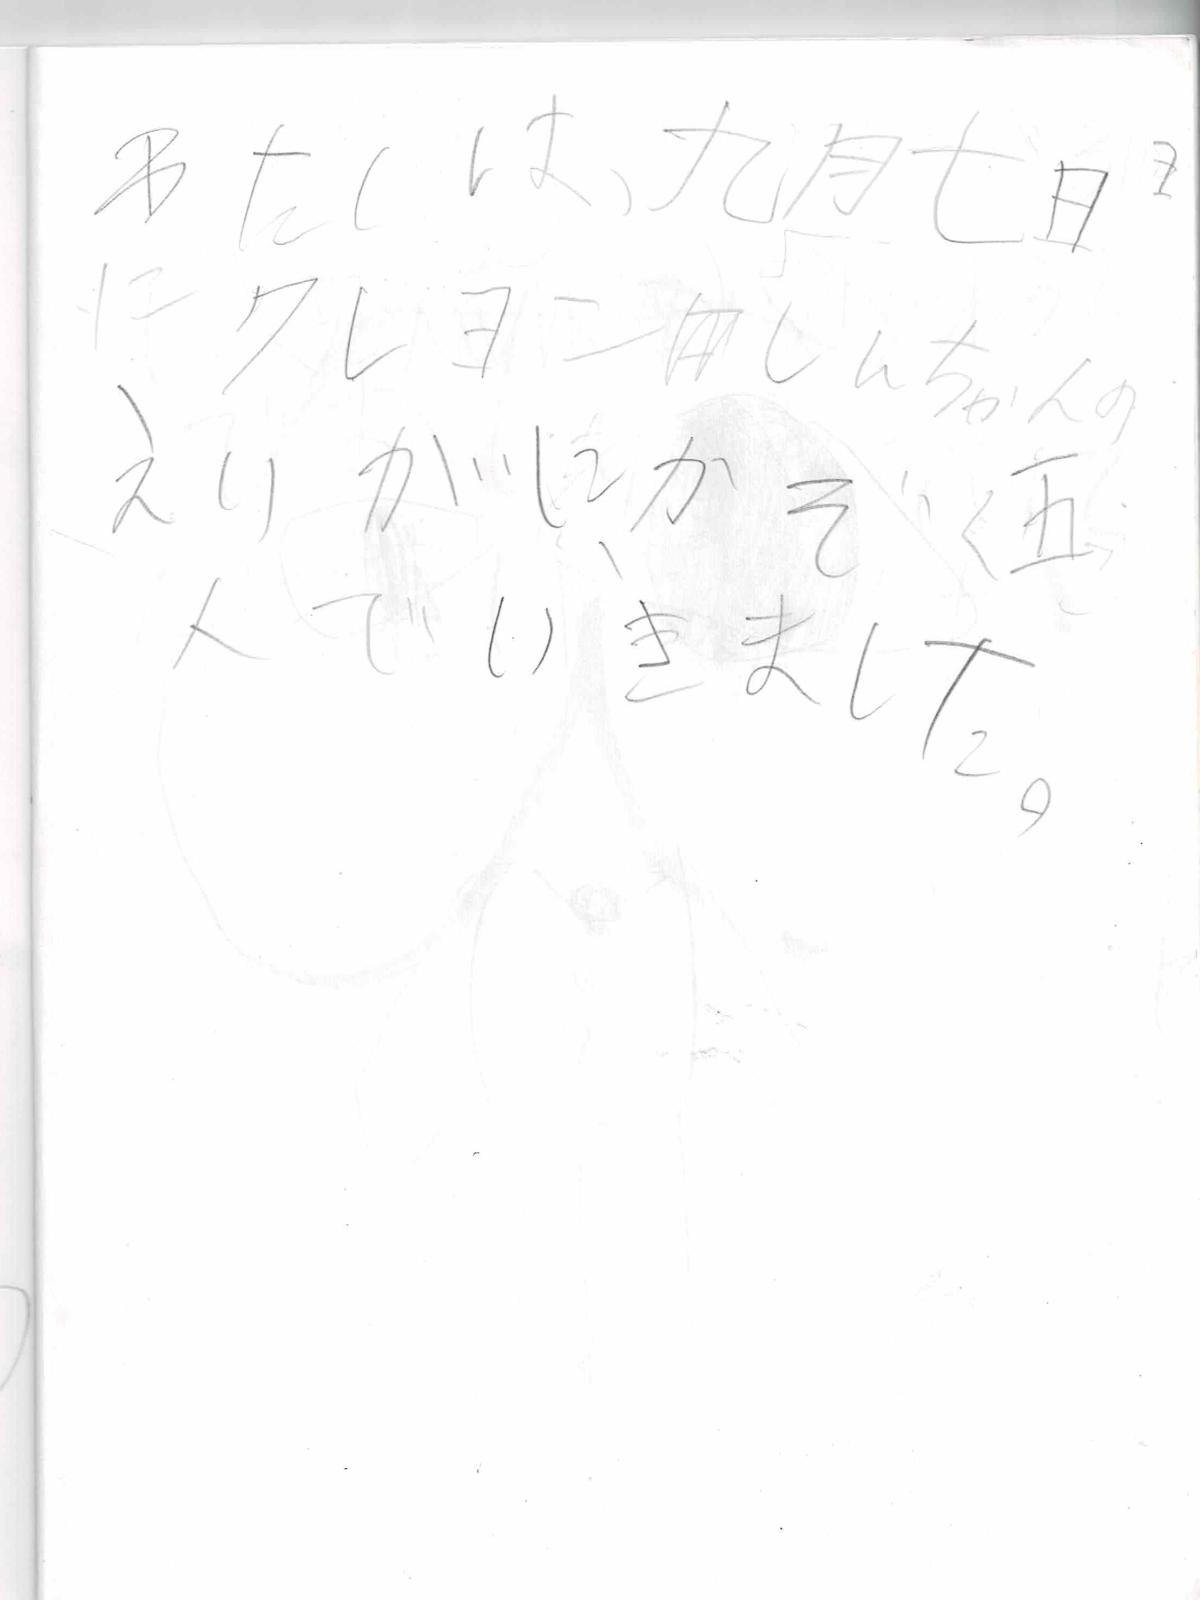 あたしは、九月七日
にクレヨンしんちゃんの
えいがにかぞく五
人でいきました。